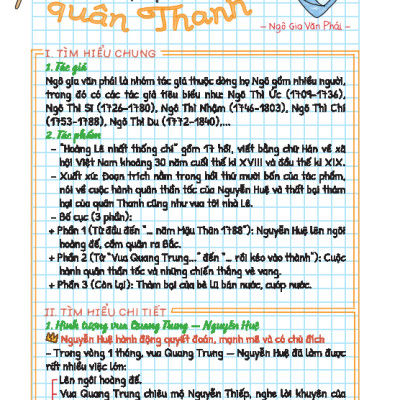 quân Thanh
– Ngô Gia Văn Phái –
I. TÌM HIỂU CHUNG
1. Tác giả
Ngô gia văn phái là nhóm tác giả thuộc dòng họ Ngô gồm nhiều người,
trong đó có các tác giả tiêu biểu như: Ngô Thì Ức (1709-1736),
Ngô Thì Sĩ (1726-1780), Ngô Thì Nhậm (1746-1803), Ngô Thì Chí
(1753-1788), Ngô Thì Du (1772-1840),...
2. Tác phẩm
– "Hoàng Lê nhất thống chí" gồm 17 hồi, viết bằng chữ Hán về xã
hội Việt Nam khoảng 30 năm cuối thế kỉ XVIII và đầu thế kỉ XIX.
– Xuất xứ: Đoạn trích nằm trong hồi thứ mười bốn của tác phẩm,
nói về cuộc hành quân thần tốc của Nguyễn Huệ và thất bại thảm
hại của quân Thanh cũng như vua tôi nhà Lê.
– Bố cục (3 phần):
+ Phần 1 (Từ đầu đến "... năm Mậu Thân 1788"): Nguyễn Huệ lên ngôi
hoàng đế, cầm quân ra Bắc.
+ Phần 2 (Từ "Vua Quang Trung..." đến "... rồi kéo vào thành"): Cuộc
hành quân thần tốc và những chiến thắng vẻ vang.
+ Phần 3 (Còn lại): Thảm bại của bè lũ bán nước, cướp nước.
II. TÌM HIỂU CHI TIẾT
1. Hình tượng vua Quang Trung – Nguyễn Huệ
Nguyễn Huệ hành động quyết đoán, mạnh mẽ và có chủ đích
– Trong vòng 1 tháng, vua Quang Trung – Nguyễn Huệ đã làm được
rất nhiều việc lớn:
Lên ngôi hoàng đế.
Vua Quang Trung chiêu mộ Nguyễn Thiếp, nghe lời khuyên của